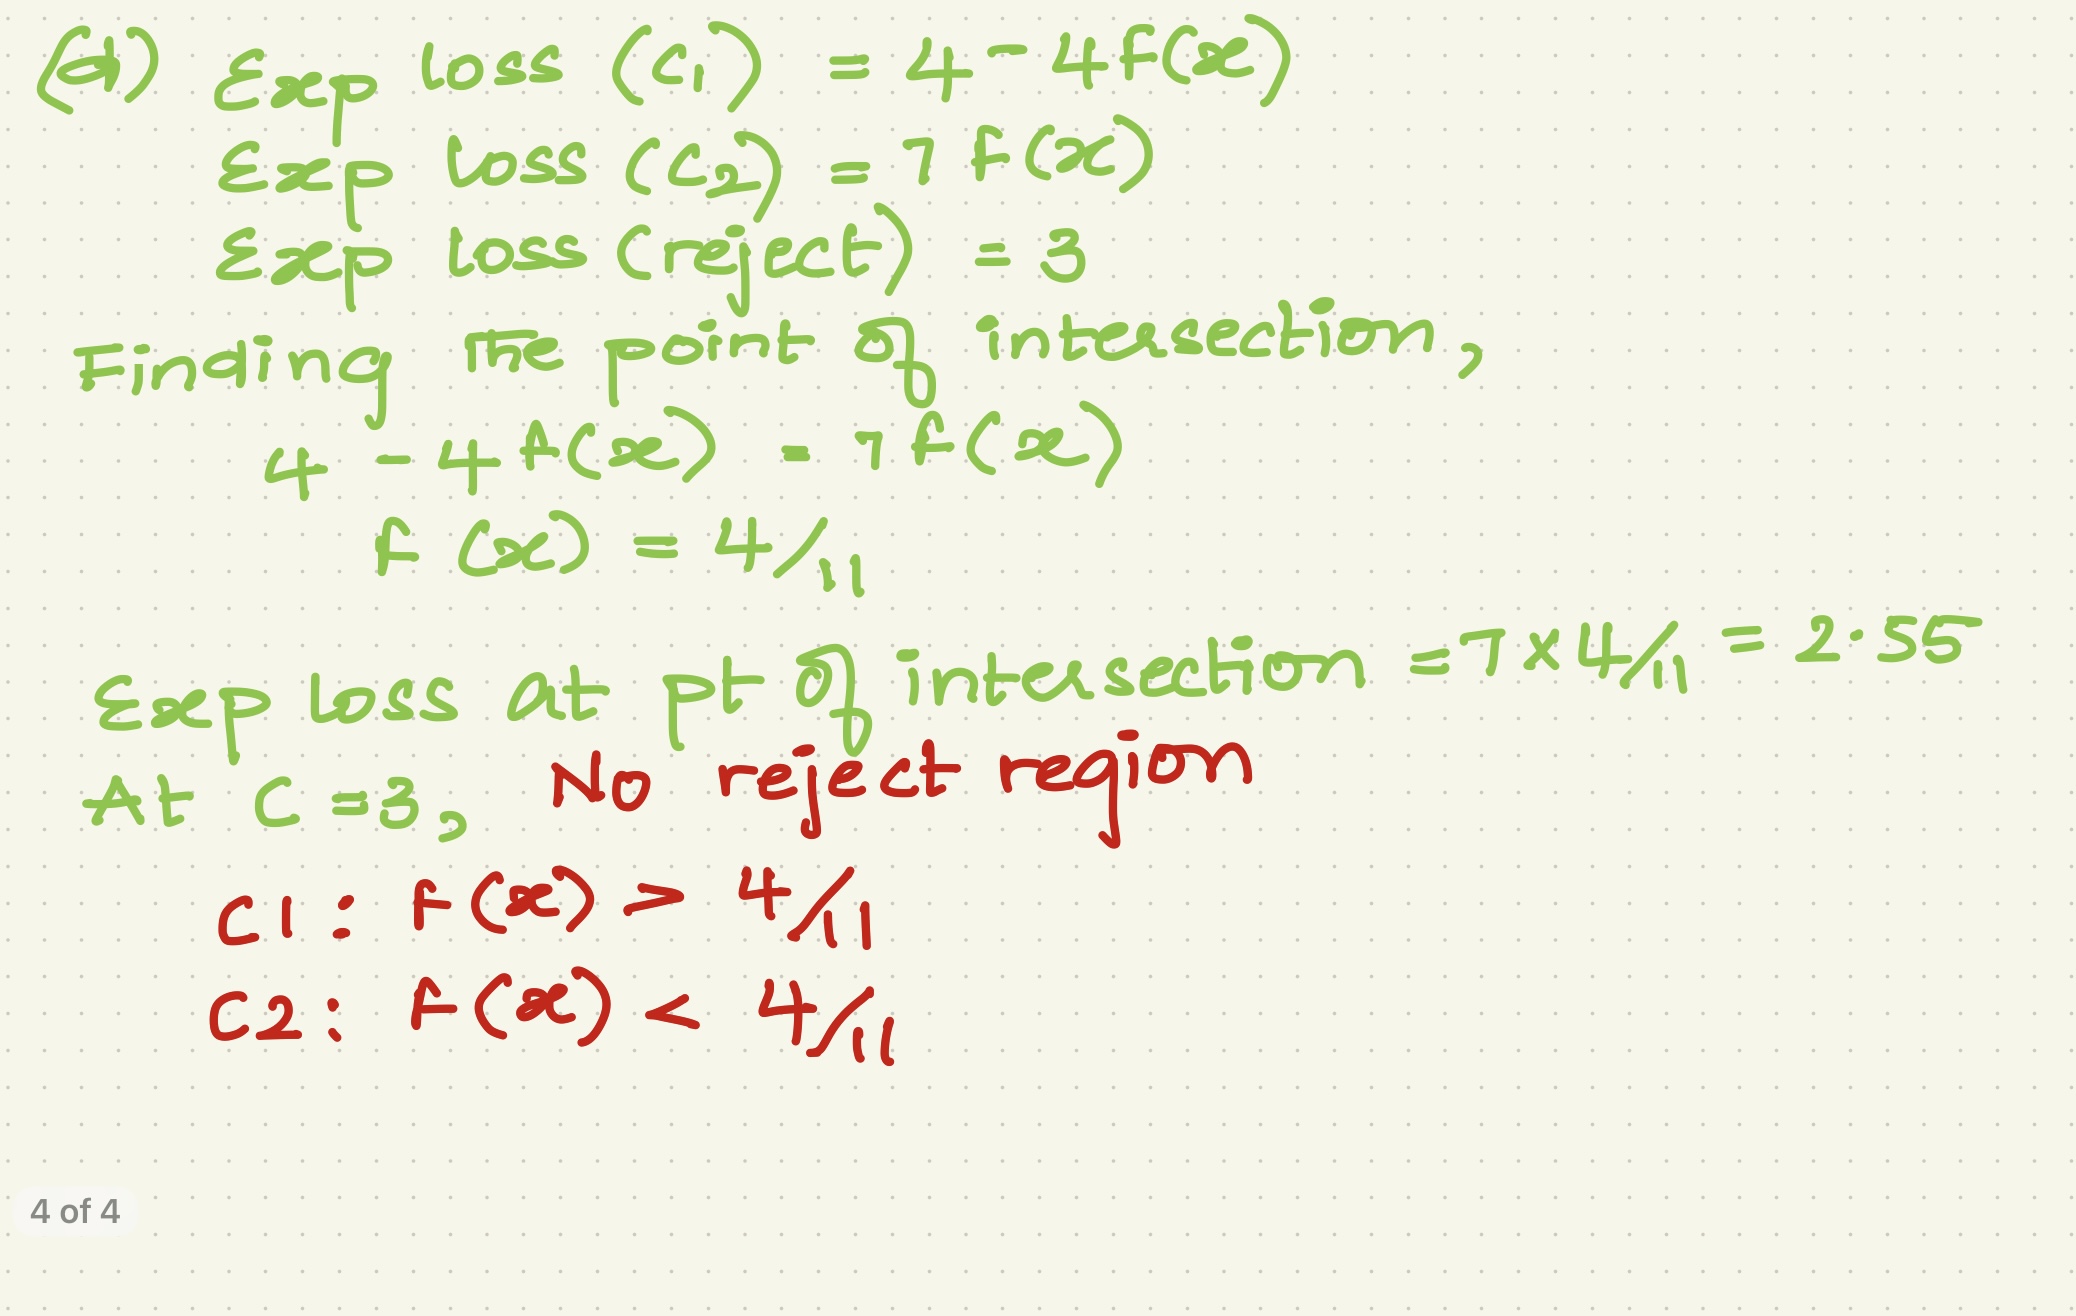 (d) Exp loss (C₁) = 4 - 4f(x)
Exp loss (C₂) = 7 f(x)
Exp loss (reject) = 3
Finding the point of intersection,
4 - 4 f(x) = 7 f(x)
f (x) = 4/11
Exp loss at pt of intersection = 7 x 4/11 = 2.55
At C = 3, No reject region
C1: f(x) > 4/11
C2: f(x) < 4/11
4 of 4